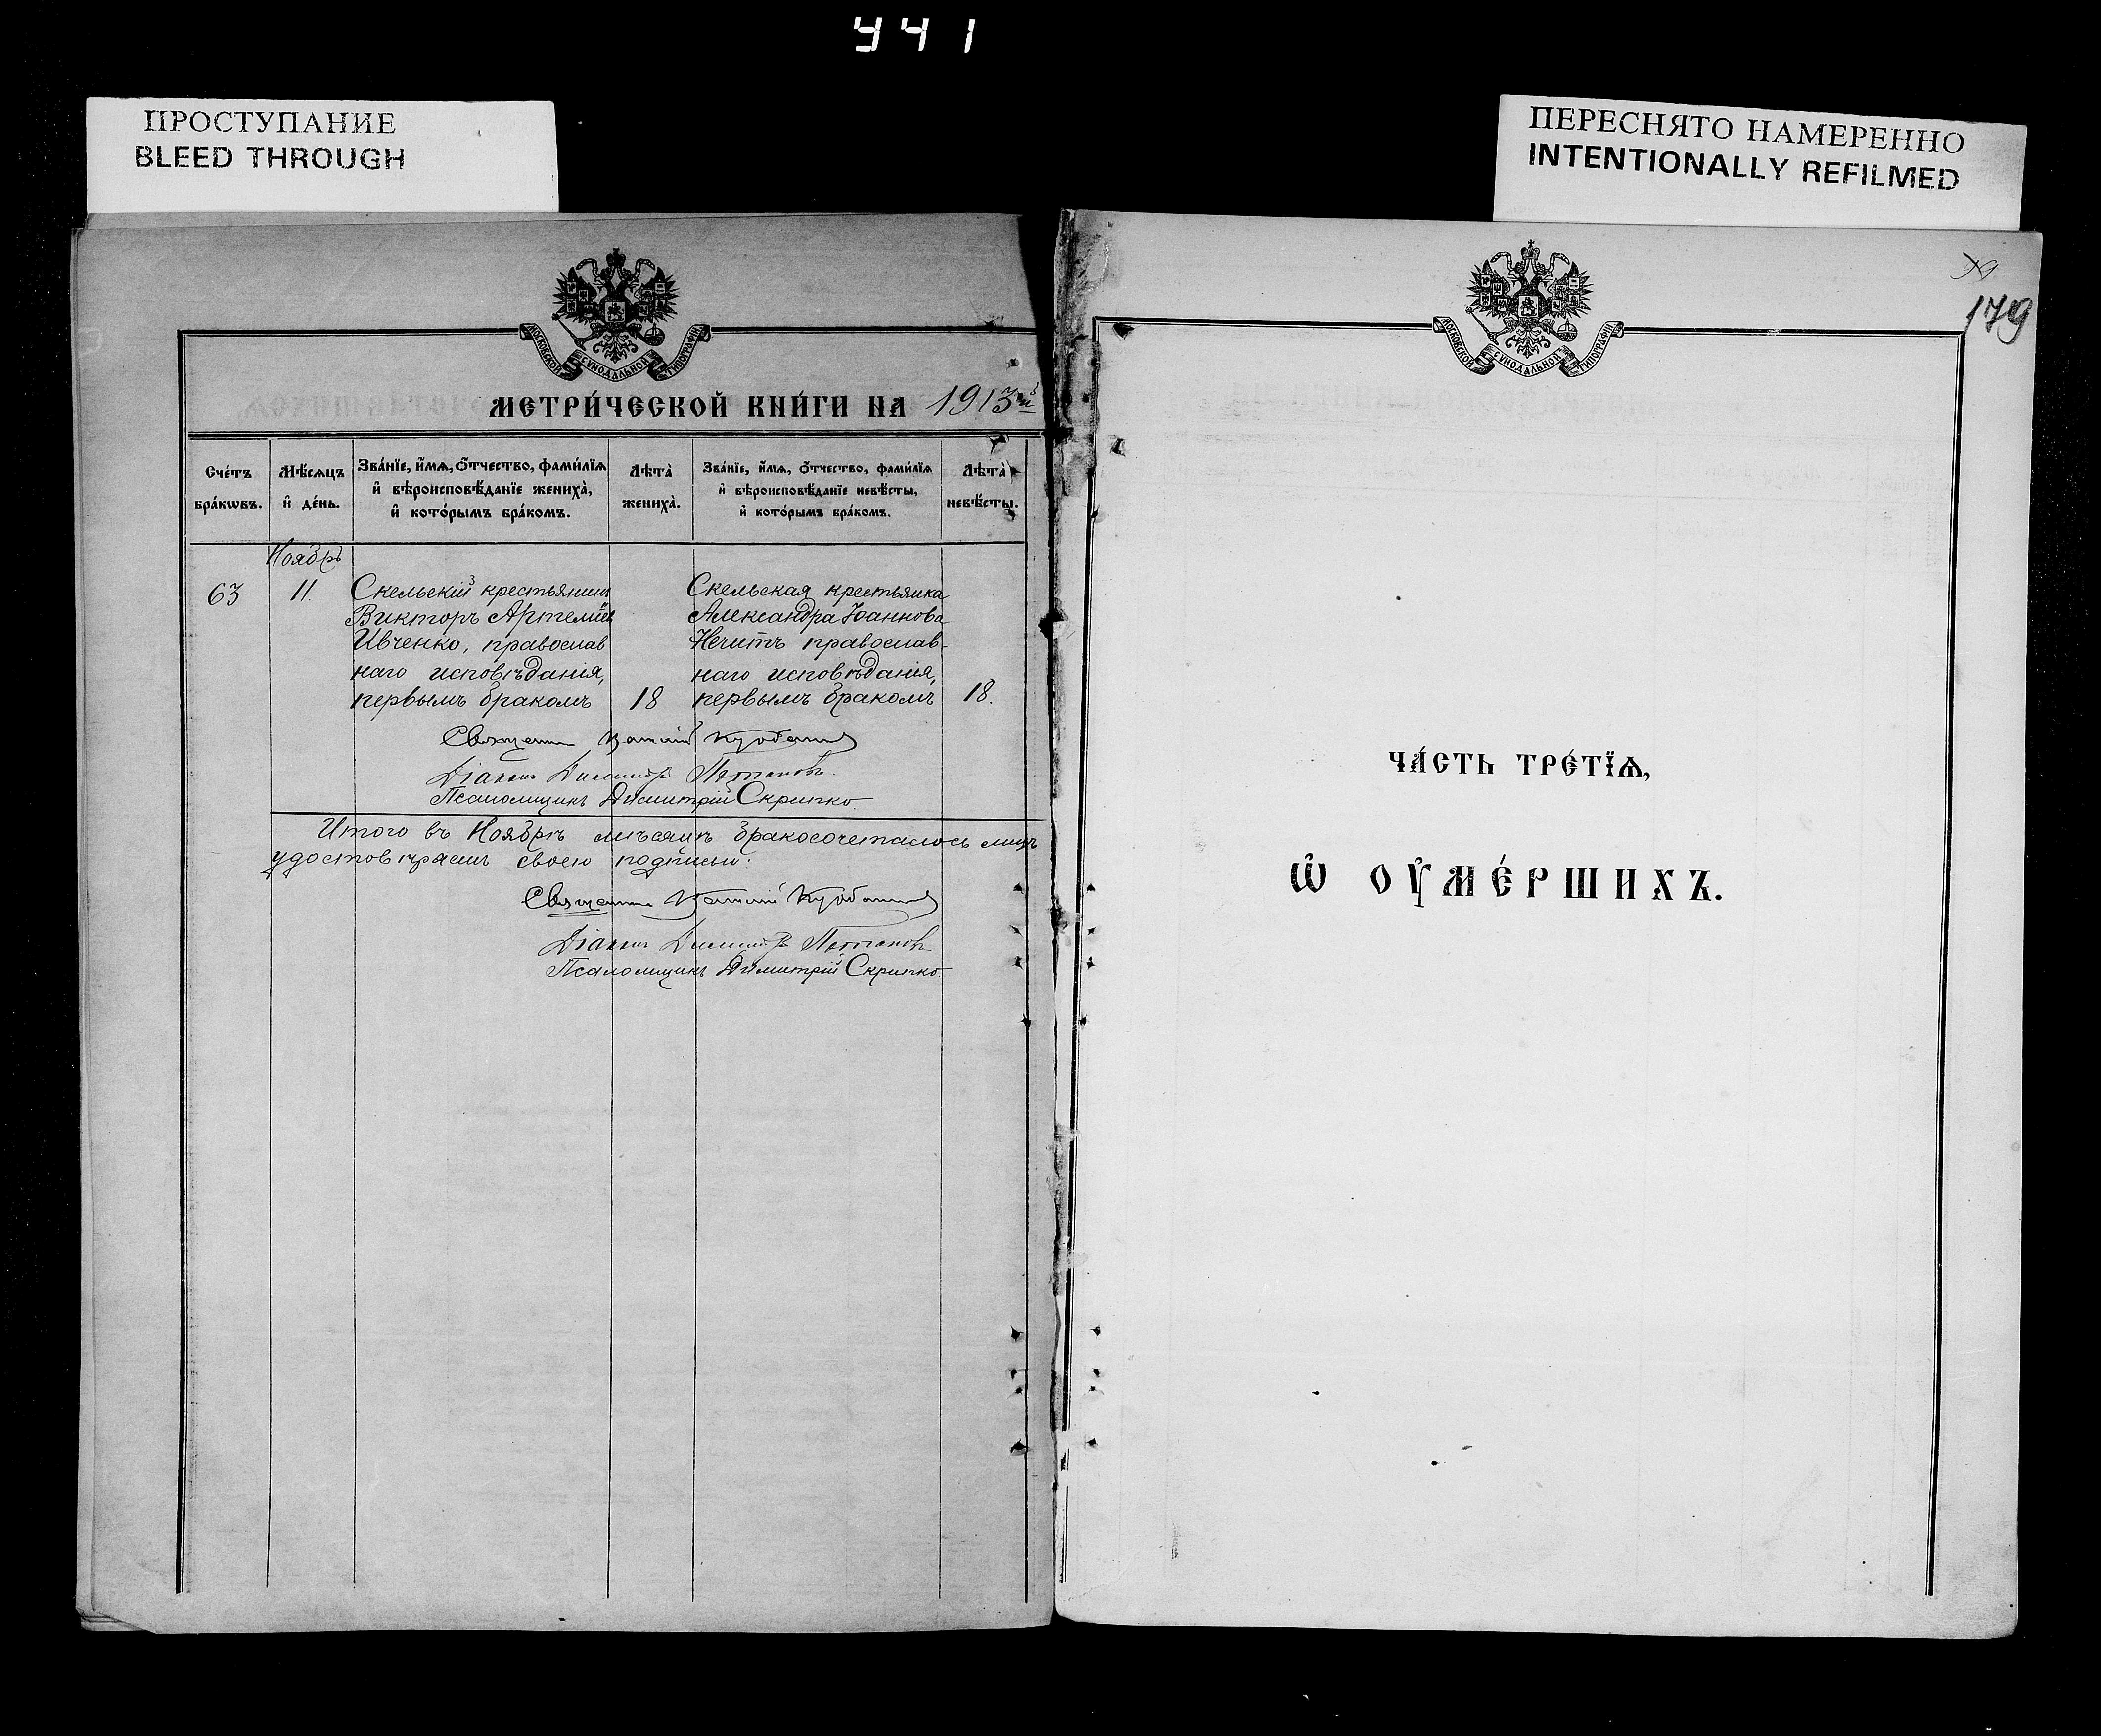 441
ПРОСТУПАНИЕ
BLEED THROUGH
ПЕРЕСНЯТО НАМЕРЕННО
INTENTIONALLY REFILMED
МОСКОВСКОЙ СѴНОДАЛЬНОЙ ТИПОГРАФІИ
МЕТРИ́ЧЕСКОЙ КНИ́ГИ НА 1913й
Сче́тъ бра́кѡвъ.
Мѣ́сяцъ и҆ де́нь.
Зва́нїе, и҆́мѧ, ѻ҆́тчество, фами́лїѧ
и҆ вѣроисповѣ́данїе жениха̀,
и҆ кото́рымъ бра́комъ.
Лѣта̀ жениха̀.
Зва́нїе, и҆́мѧ, ѻ҆́тчество, фами́лїѧ
и҆ вѣроисповѣ́данїе невѣ́сты,
и҆ кото́рымъ бра́комъ.
Лѣта̀ невѣ́сты.
Ноябрь
63
11.
Скельскій крестьянинъ
Викторъ Артеміевъ
Ивченко, православ
наго исповѣданія,
первымъ бракомъ
18
Скельская крестьянка
Александра Іоаннова
Нечитъ православ-
наго исповѣданія,
первымъ бракомъ
18.
Священн
Діаконъ Димитрій
Псаломщикъ Димитрій Скрипко
Итого въ Ноябрѣ мѣсяцѣ бракосочеталось лицъ
удостовѣряемъ своею подписью:
Священн
Діаконъ Димитрій
Псаломщикъ Димитрій Скрипко.
МОСКОВСКОЙ СѴНОДАЛЬНОЙ ТИПОГРАФІИ
179
ЧА́СТЬ ТРЕ́ТЇѦ,
Ѡ҆ ОУ҆МЕ́РШИХЪ.